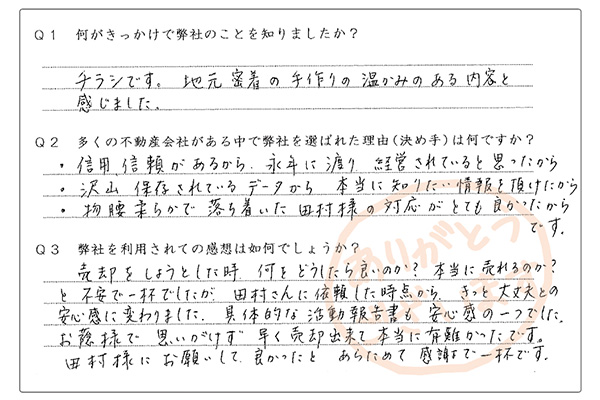 Q1 何がきっかけで弊社のことを知りましたか？
チラシです。地元密着の手作りの温かみのある内容と
感じました。
Q2 多くの不動産会社がある中で弊社を選ばれた理由(決め手)は何ですか？
・信用、信頼があるから、永年に渡り、経営されていると思ったから
・沢山 保存されているデータから 本当に知りたい情報を頂けたから
・物腰柔らかで 落ち着いた 田村様の対応がとても良かったから
です。
Q3 弊社を利用されての感想は如何でしょうか？
売却をしようとした時、何をどうしたら良いのか？本当に売れるのか？
と不安で一杯でしたが、田村さんに依頼した時点から、きっと大丈夫との
安心感に変わりました。具体的な活動報告書も 安心感の一つでした。
お蔭様で 思いがけず 早く売却出来て本当に有難かったです。
田村様にお願いして、良かったと あらためて 感謝で一杯です。
ありがとう